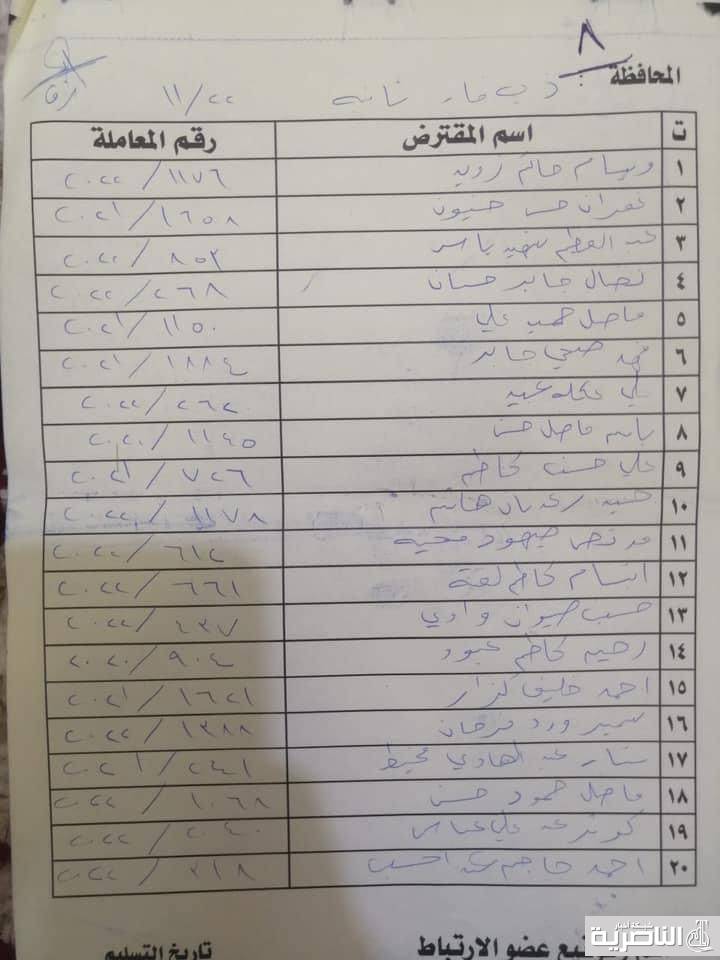 ٨
المحافظة : ذي قار ١١/٢٢
ت اسم المقترض رقم المعاملة
١ وسام حاتم زويد ١١٧٦ / ٢٠٢٢
٢ حسن ١٦٥٨ / ٢٠٢١
٣ عبد العظيم ياسر ٨٥٣ / ٢٠٢٢
٤ نضال جابر حسان ٢٦٨ / ٢٠٢٢
٥ فاضل حميد علي ١١٥٠ / ٢٠٢١
٦ محمد صبحي جابر ١٨٨٤ / ٢٠٢١
٧ علي عكله عبيد ٢٦٢ / ٢٠٢٢
٨ باسم فاضل حسن ١١٤٥ / ٢٠٢٠
٩ علي حسن كاظم ٧٢٦ / ٢٠٢١
١٠ هاشم ١١٧٨ / ٢٠٢٢
١١ صيهود ٦١٢ / ٢٠٢٢
١٢ ابتسام كاظم لفتة ٦٦١ / ٢٠٢٢
١٣ وادي ٤٣٧ / ٢٠٢٢
١٤ رحيم كاظم عبود ٩٠٤ / ٢٠٢٠
١٥ احمد خليف كزار ١٦٢١ / ٢٠٢١
١٦ سمير ورد فرحان ١٣٨٨ / ٢٠٢٢
١٧ ستار عبد الهادي محيط ٢٤١ / ٢٠٢١
١٨ فاضل حمود حسن ١٠٦٨ / ٢٠٢٢
١٩ كوثر عبد علي عباس / ٢٠٢٢
٢٠ احمد جاسم عبد ٣١٨ / ٢٠٢٢
عضو الارتباط تاريخ التسليم
شبكة أخبار
الناصرية